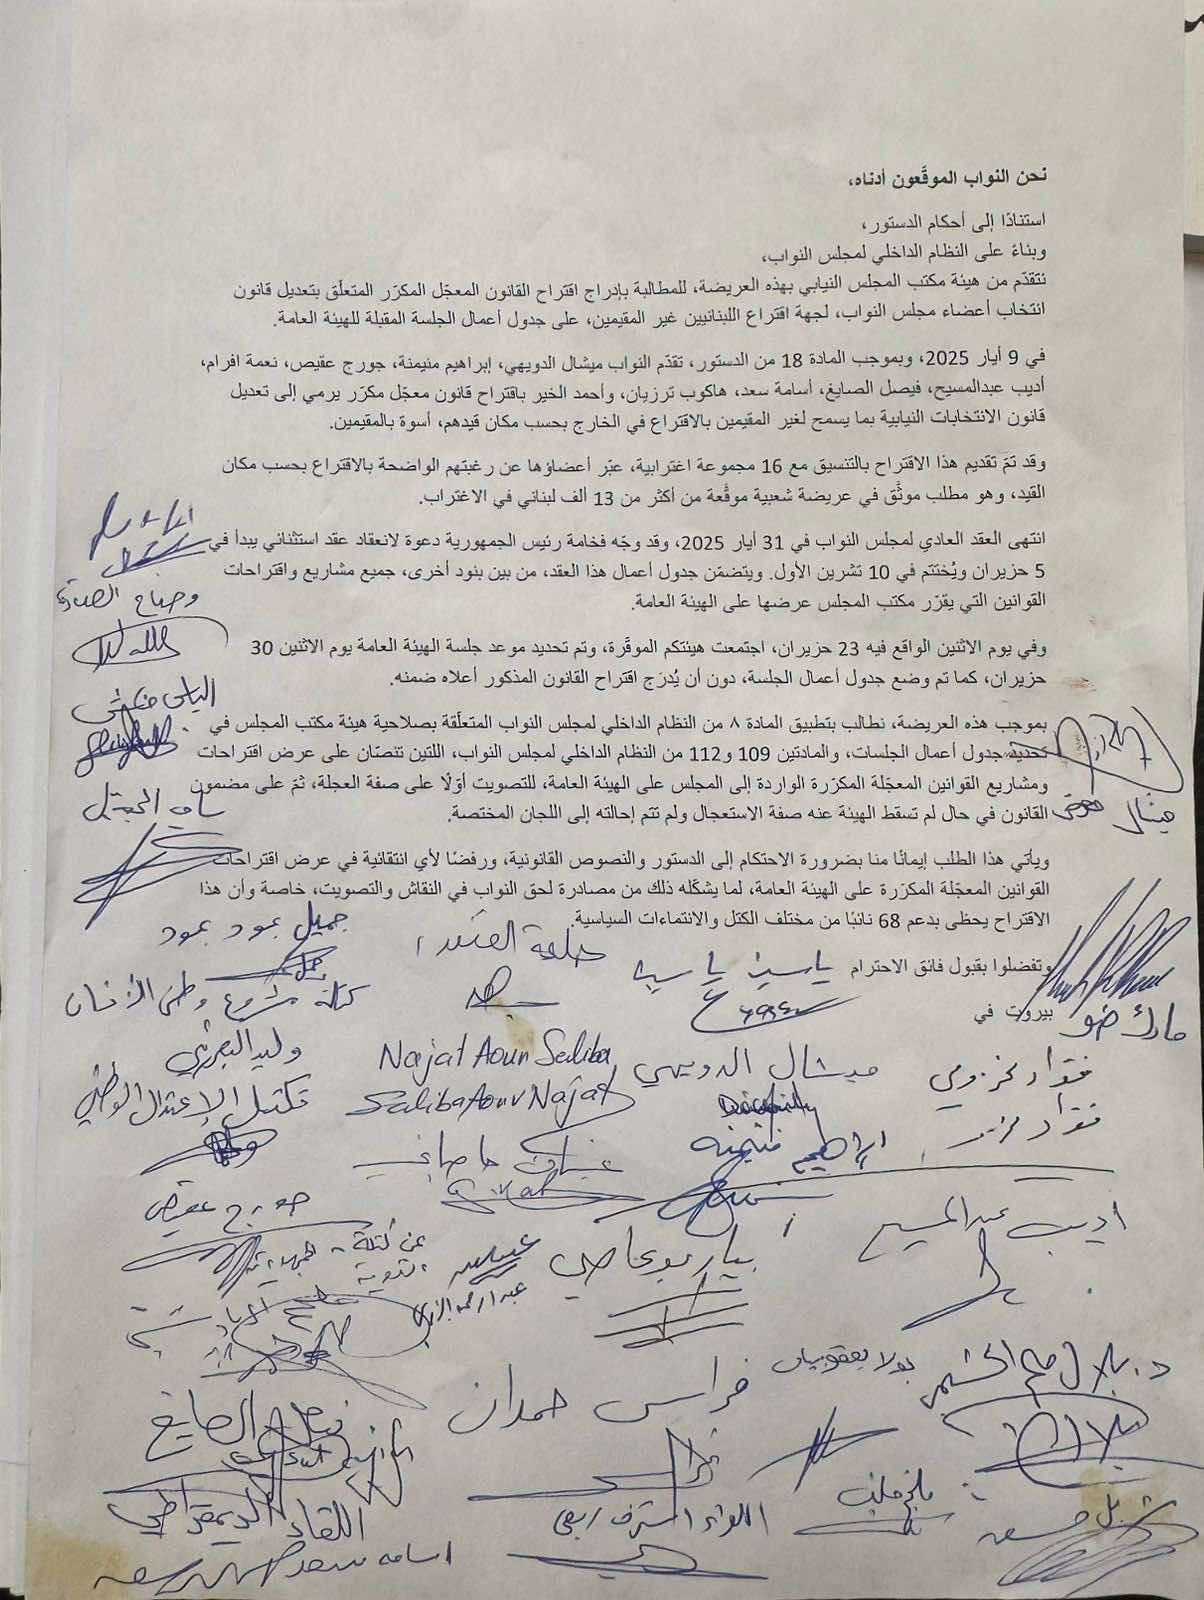 نحن النواب الموقّعون أدناه،
استنادًا إلى أحكام الدستور،
وبناءً على النظام الداخلي لمجلس النواب،
نتقدّم من هيئة مكتب المجلس النيابي بهذه العريضة، للمطالبة بإدراج اقتراح القانون المعجّل المكرّر المتعلّق بتعديل قانون
انتخاب أعضاء مجلس النواب، لجهة اقتراع اللبنانيين غير المقيمين، على جدول أعمال الجلسة المقبلة للهيئة العامة.
في 9 أيار 2025، وبموجب المادة 18 من الدستور، تقدّم النواب ميشال الدويهي، إبراهيم منيمنة، جورج عقيص، نعمة افرام،
أديب عبدالمسيح، فيصل الصايغ، أسامة سعد، هاكوب ترزيان، وأحمد الخير باقتراح قانون معجّل مكرّر يرمي إلى تعديل
قانون الانتخابات النيابية بما يسمح لغير المقيمين بالاقتراع في الخارج بحسب مكان قيدهم، أسوة بالمقيمين.
وقد تمّ تقديم هذا الاقتراح بالتنسيق مع 16 مجموعة اغترابية، عبّر أعضاؤها عن رغبتهم الواضحة بالاقتراع بحسب مكان
القيد، وهو مطلب موثّق في عريضة شعبية موقّعة من أكثر من 13 ألف لبناني في الاغتراب.
انتهى العقد العادي لمجلس النواب في 31 أيار 2025، وقد وجّه فخامة رئيس الجمهورية دعوة لانعقاد عقد استثنائي يبدأ في
5 حزيران ويُختتم في 10 تشرين الأول. ويتضمّن جدول أعمال هذا العقد، من بين بنود أخرى، جميع مشاريع واقتراحات
القوانين التي يقرّر مكتب المجلس عرضها على الهيئة العامة.
وفي يوم الاثنين الواقع فيه 23 حزيران، اجتمعت هيئتكم الموقّرة، وتم تحديد موعد جلسة الهيئة العامة يوم الاثنين 30
حزيران، كما تم وضع جدول أعمال الجلسة، دون أن يُدرَج اقتراح القانون المذكور أعلاه ضمنه.
بموجب هذه العريضة، نطالب بتطبيق المادة ٨ من النظام الداخلي لمجلس النواب المتعلّقة بصلاحية هيئة مكتب المجلس في
تحديد جدول أعمال الجلسات، والمادتين 109 و112 من النظام الداخلي لمجلس النواب، اللتين تنصّان على عرض اقتراحات
ومشاريع القوانين المعجّلة المكرّرة الواردة إلى المجلس على الهيئة العامة، للتصويت أوّلًا على صفة العجلة، ثمّ على مضمون
القانون في حال لم تسقط الهيئة عنه صفة الاستعجال ولم تتم إحالته إلى اللجان المختصة.
ويأتي هذا الطلب إيمانًا منا بضرورة الاحتكام إلى الدستور والنصوص القانونية، ورفضًا لأي انتقائية في عرض اقتراحات
القوانين المعجّلة المكرّرة على الهيئة العامة، لما يشكّله ذلك من مصادرة لحق النواب في النقاش والتصويت، خاصة وأن هذا
الاقتراح يحظى بدعم 68 نائبًا من مختلف الكتل والانتماءات السياسية.
وتفضلوا بقبول فائق الاحترام
بيروت في
وضاح الصادق
الياس حنكش
سامي الجميّل
ميشال معوض
مارك ضو
جميل عبود عبود
كتلة مشروع وطن الإنسان
ياسين ياسين
وليد البعريني
تكتل الاعتدال الوطني
Najat Aoun Saliba
Saliba Aoun Najat
ميشال الدويهي
فؤاد مخزومي
فؤاد مخزومي
ابراهيم منيمنه
غسان حاصباني
جورج عقيص
عن كتلة الجمهورية
القوية
بيار بوعاصي
أديب عبد المسيح
بولا يعقوبيان
فراس حمدان
د. بلال الحشيمي
فيصل الصايغ
اللقاء الديمقراطي
اسامه سعد
اللواء اشرف ريفي
ملحم خلف
شربل مسعد